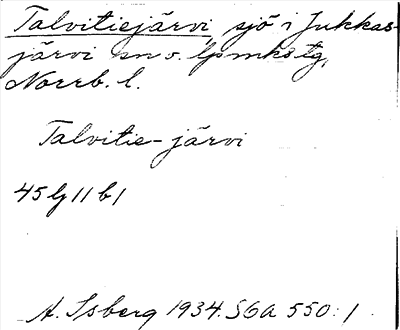 Talvitiejärvi sjö i Jukkas-
järvi sn o. lpmkstg,
Norrb. l.
Talvitie-järvi
45 lj 11 b 1
A. Isberg 1934. S6A 550: 1.